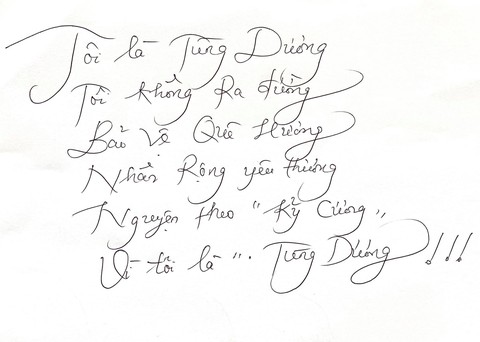 Tôi là Tùng Dương
Tôi không Ra đường
Bảo Vệ Quê Hương
Nhân Rộng yêu thương
Nguyện theo " Kỷ Cương "
Vì tôi là ". Tùng Dương !!!